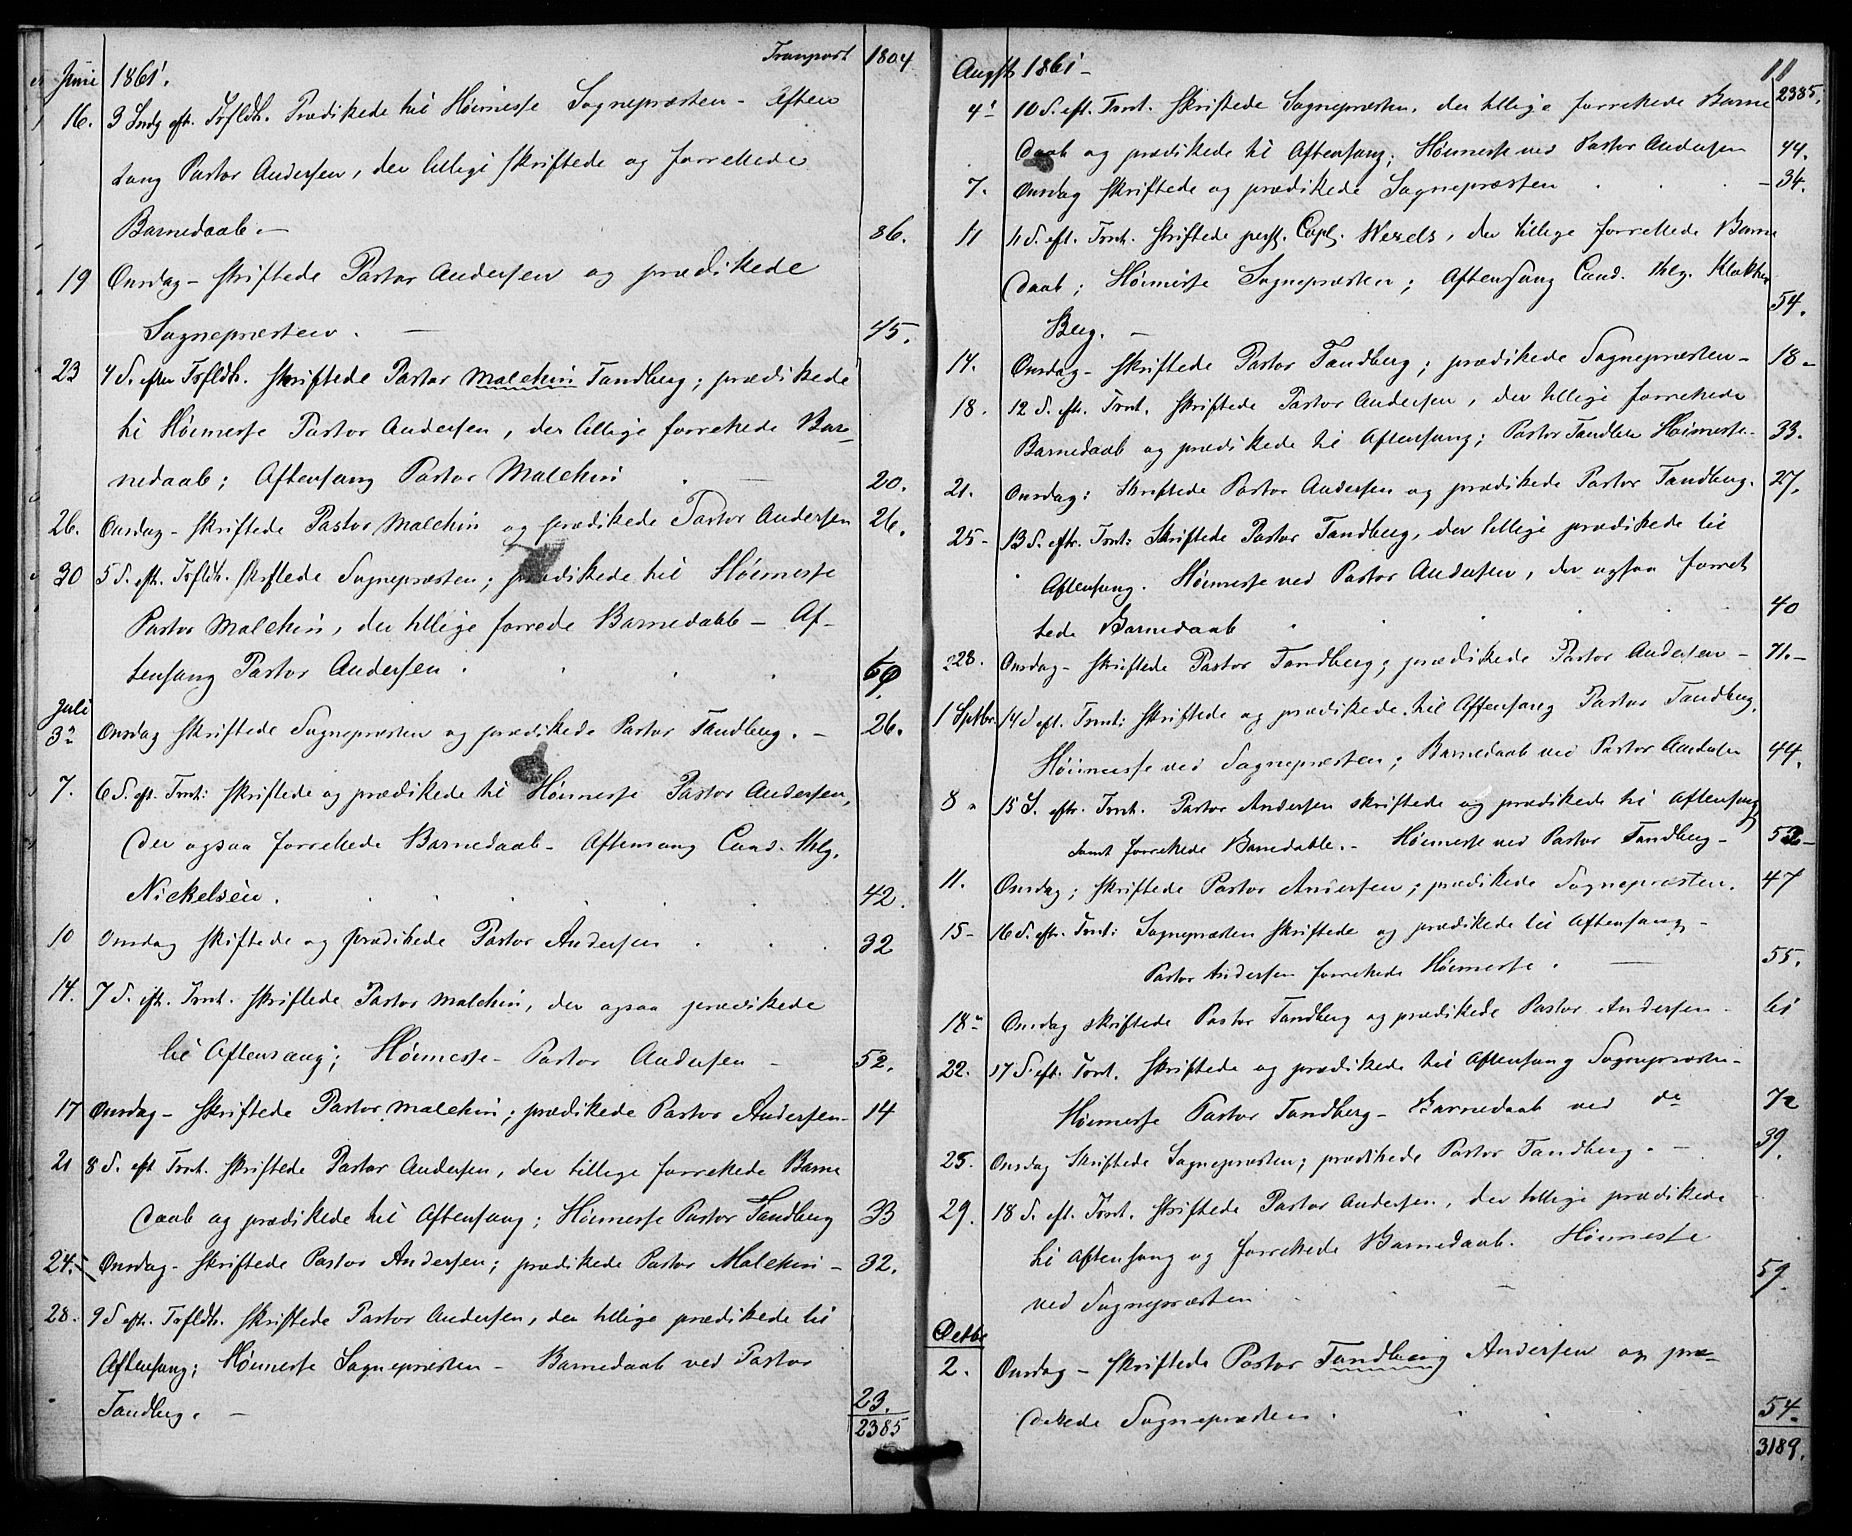 Transport 1804
Juni 1861.
16. 3 Sndg eft. Trfldh. Prædikede til Høimesse Sognepræsten - Aften
sang Pastor Andersen, der tillige skriftede og forrettede
Barnedaab. - 86.
19 Onsdag - skriftede Pastor Andersen og prædikede
Sognepræsten. - 45.
23 4 S. efter Trfldh. skriftede Pastor Malchin Tandberg; prædikede
til Høimesse Pastor Andersen, der tillige forrettede Bar-
nedaab; Aftensang Pastor Malchin . - 20.
26. Onsdag - skriftede Pastor Malchin og prædikede Pastor Andersen 26.
30 5 S. eft. Trfldh. skriftede Sognepræsten; prædikede til Høimesse
Pastor Malchin, der tillige forrede Barnedaab - Af-
tensang Pastor Andersen . . . 69.
Juli
3 Onsdag skriftede Sognepræsten og prædikede Pastor Tandberg. - 26.
7. 6 S. eft. Trnt: skriftede og prædikede til Høimesse Pastor Andersen,
der ogsaa forrettede Barnedaab - Aftensang Cand. thlg.
Nickelsen. . . . . 42.
10 Onsdag skiftede og prædikede Pastor Andersen . . . 32
14. 7 S. eft. Trnt. skriftede Pastor Malchin, der ogsaa prædikede
til Aftensang; Høimesse - Pastor Andersen - 52.
17 Onsdag - skriftede Pastor Malchin; prædikede Pastor Andersen - 14
21 8 S. eft Trnt. skriftede Pastor Andersen, der tillige forrettede Barne
daab og prædikede til Aftensang; Høimesse Pastor Tandberg 33
24. - Onsdag - skriftede Pastor Andersen; prædikede Pastor Malchin - 32.
28. 9 S eft. Trfldh. skriftede Pastor Andersen, der tillige prædikede til
Aftensang; Høimesse Sognepræsten - Barnedaab ved Pastor
Tandberg. - 23.
2385
11
Augst 1861 - 2385.
4 10 S. eft. Trnt. skriftede Sognepræsten, der tillige forrettede Barne
daab og prædikede til Aftensang; Høimesse ved Pastor Andersen 44.
7. Onsdag skriftede og prædikede Sognepræsten . . . - 34.
11 11 S. eft. Trnt. skriftede Capl. Wexels, der tillige forrettede Barne
daab; Høimesse Sognepræsten; Aftensang Cand. thlg. Klokker
Berg. - 54.
14. Onsdag - skriftede Pastor Tandberg; prædikede Sognepræsten - 18 -
18. 12 S. eft. Trnt. skriftede Pastor Andersen, der tillige forrettede
Barnedaab og prædikede til Aftensang; Pastor Tandber Høimesse - 33.
21. Onsdag: skriftede Pastor Andersen og prædikede Pastor Tandberg. 27.
25 - 13 S. eftr. Trnt: skriftede Pastor Tandberg, der tillige prædikede til
Aftensang. Høimesse ved Pastor Andersen, der ogsaa forret
tede Barnedaab . . . 40
28. Onsdag - skriftede Pastor Tandberg; prædikede Pastor Andersen - 71. -
1 Sptbr. 14 S eft. Trnt: skriftede og prædikede til Aftensang Pastor Tandberg,
Høimesse ved Sognepræsten; Barnedaab ved Pastor Andersen 44.
8 15 S. eftr. Trnt. Pastor Andersen skriftede og prædikede til Aftensang
samt forrettede Barnedabe. - Høimesse ved Pastor Tandberg - 52 -
11. Onsdag; skriftede Pastor Andersen; prædikede Sognepræsten. 47
15 - 16 S. eftr. Trnt: Sognepræsten skriftede og prædikede til Aftensang -
Pastor Andersen forrettede Høimesse. - 55.
18 Onsdag skriftede Pastor Tandberg og prædikede Pastor Andersen - 61
22. 17 S. eft. Trnt. skriftede og prædikede til Aftensang Sognepræsten -
Høimesse Pastor Tandberg - Barnedaab ved do 72
25. Onsdag skriftede Sognepræsten; prædikede Pastor Tandberg. - 39.
29. 18 S. eft. Trnt. skriftede Pastor Andersen, der tillige prædikede
til Aftensang og forrettede Barnedaab. Høimesse
ved Sognepræsten . - 59.
Octbr
2. Onsdag - skriftede Pastor Tandberg Andersen og præ-
dikede Sognepræsten . . . 54.
3189.